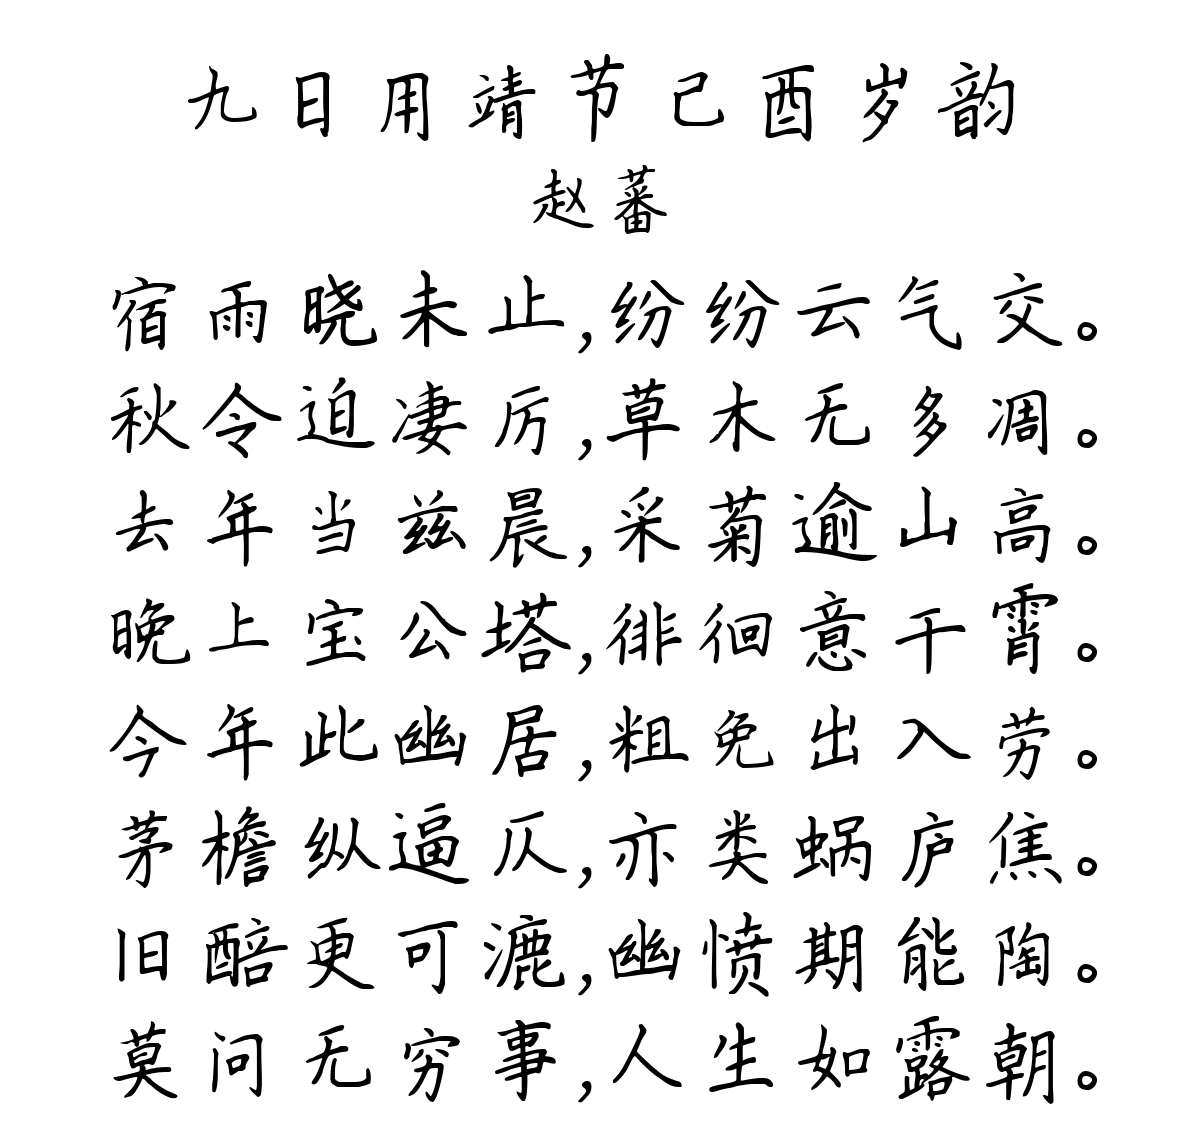 九日用靖节己酉岁韵
赵蕃
宿雨晓未止,纷纷云气交。
秋令迫凄厉,草木无多凋。
去年当兹晨,采菊逾山高。
晚上宝公塔,徘徊意干霄。
今年此幽居,粗免出入劳。
茅檐纵逼仄,亦类蜗庐焦。
旧醅更可漉,幽愤期能陶。
莫问无穷事,人生如露朝。